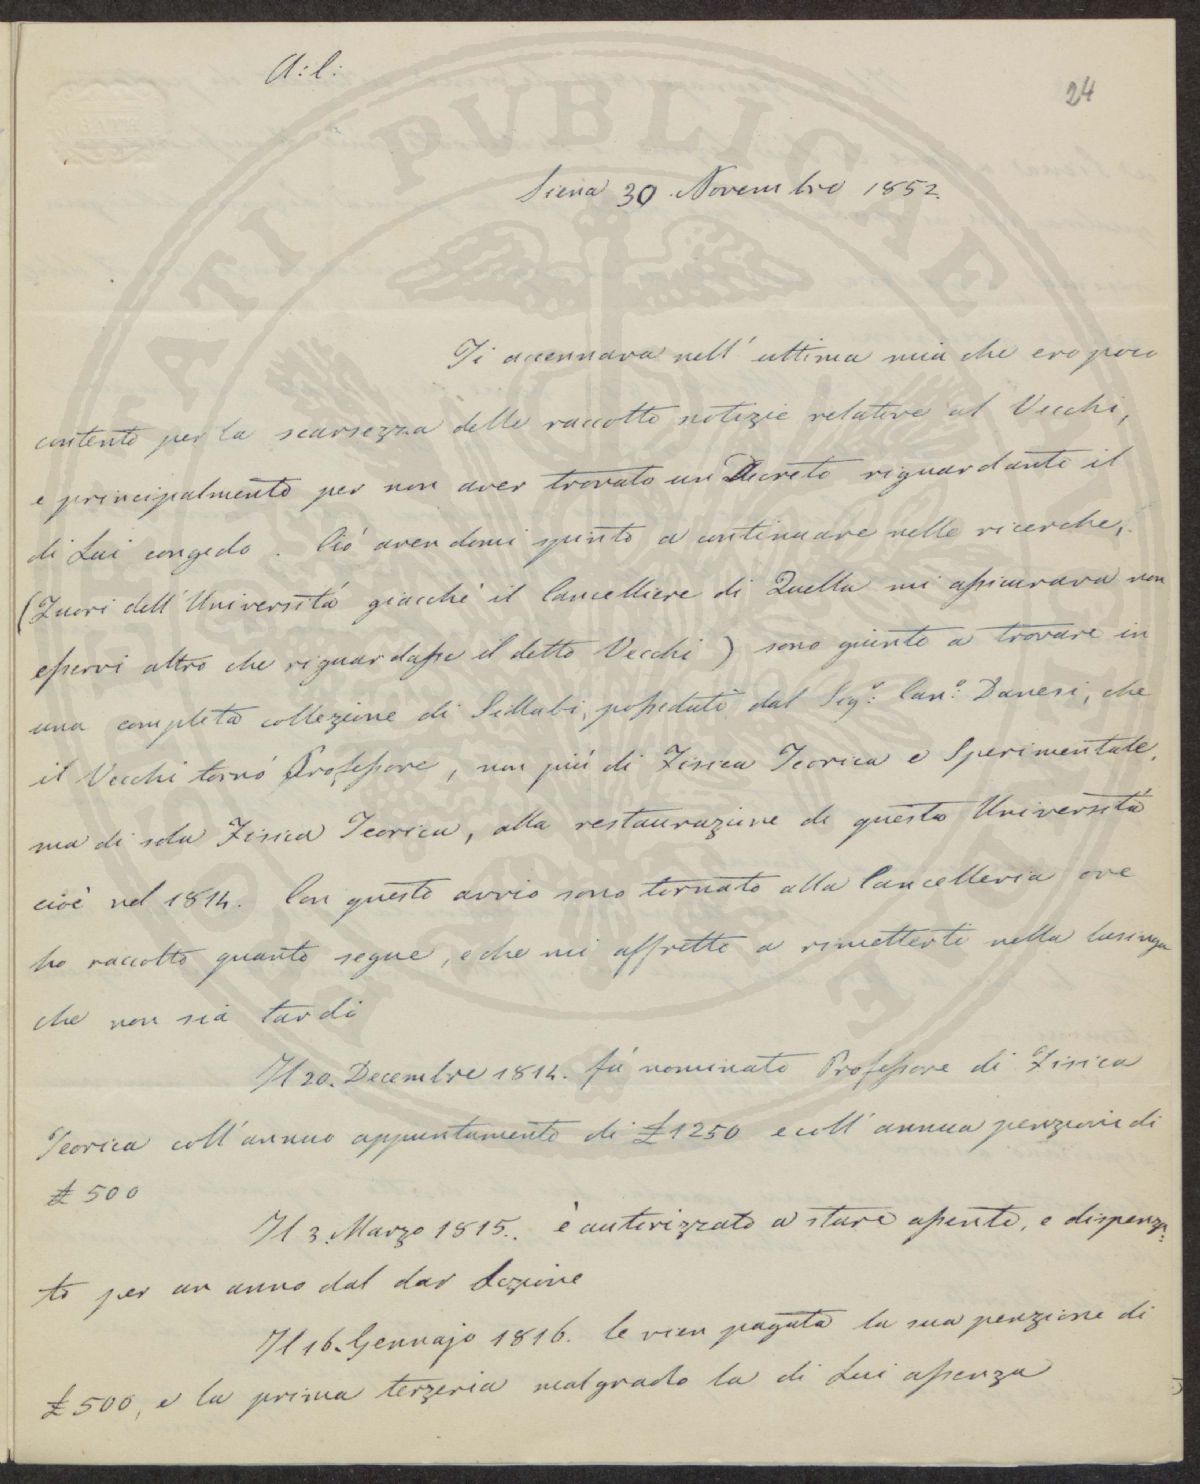 A: C:
24
Siena 30 Novembre 1852.
Ti accennava nell' ultima mia che ero poco
contento per la scarsezza delle raccolte notizie relative al Vecchi,
e principalmente per non aver trovato un Decreto riguardante il
di Lui congedo. Ciò avendomi spinto a continuare nelle ricerche,
(Fuori dell' Università giacchè il Cancelliere di Quella mi assicurava non
esservi altro che riguardasse il detto Vecchi) sono giunto a trovare in
una completa collezione di Sillabi, posseduti dal Sig.e Can.o Danesi, che
il Vecchi tornò Professore, non più di Fisica Teorica e Sperimentale,
ma di sola Fisica Teorica, alla restaurazione di questa Università
cioè nel 1814. Con questo avviso sono tornato alla Cancelleria ove
ho raccolto quanto segue, e che mi affretto a rimetterti nella lusinga
che non sia tardi
Il 20. Decembre 1814. fù nominato Professore di Fisica
Teorica coll' annuo appuntamento di £ 1250 e coll' annua penzione di
£ 500
Il 3. Marzo 1815. è autorizzato a stare assente, e dispenza:
to per un anno dal dar Lezione
Il 16. Gennajo 1816. le vien pagata la sua penzione di
£ 500, e la prima terzeria malgrado la di Lui assenza
PUBLICAE